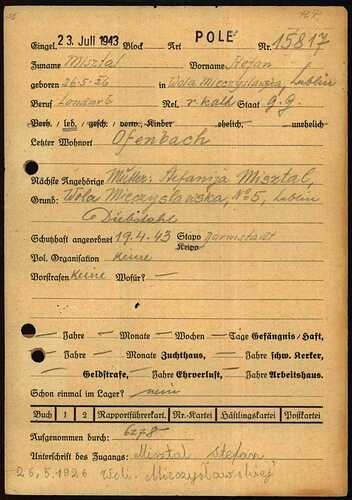 Eingel. 23. Juli 1943 Block Art POLE Nr. 15817
Zuname Misztal Vorname Stefan
geboren 26.5.26 in Wola Mieczysławska, Lublin
Beruf Landarb. Rel. r kath Staat G.G.
Verh., led., gesch., verw., Kinder ehelich, unehelich
Letzter Wohnort Ofenbach
Nächste Angehörige Mutter: Stefanija Misztal,
Grund: Wola Mieczysławska, No 5, Lublin
Diebstahl
Schutzhaft angeordnet 19.4.43 Stapo Darmstadt
Kripo
Pol. Organisation keine
Vorstrafen keine Wofür? -
Jahre Monate Wochen Tage Gefängnis/Haft,
Jahre Monate Zuchthaus, Jahre schw. Kerker,
Geldstrafe, Jahre Ehrverlust, Jahre Arbeitshaus.
Schon einmal im Lager? nein
Buch 1 2 Rapportführerkart. Nr.-Kartei Häftlingskartei Postkartei
Aufgenommen durch: 6278
Unterschrift des Zugangs: Misztal Stefan
26,5.1926 Mieczysławskiej